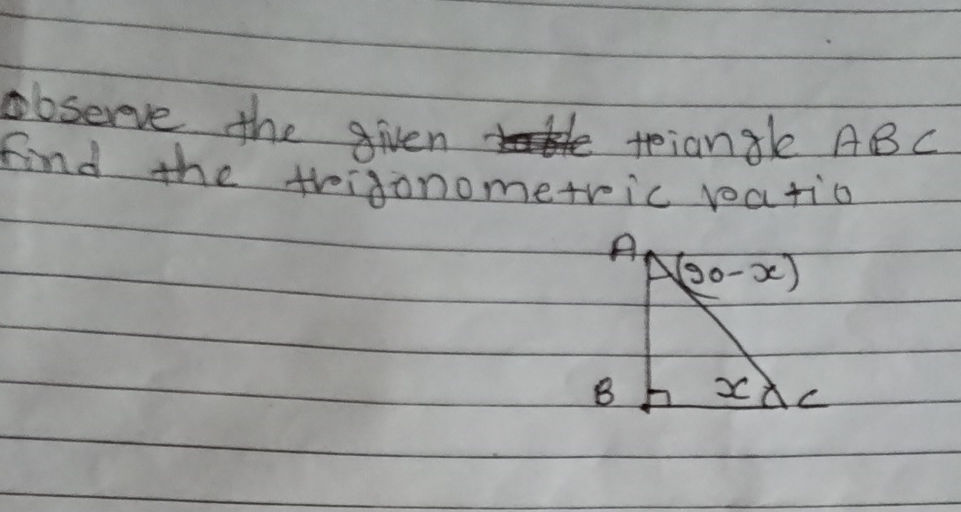 Observe the given triangle ABC
find the trigonometric ratio
A
(90-x)
B x C